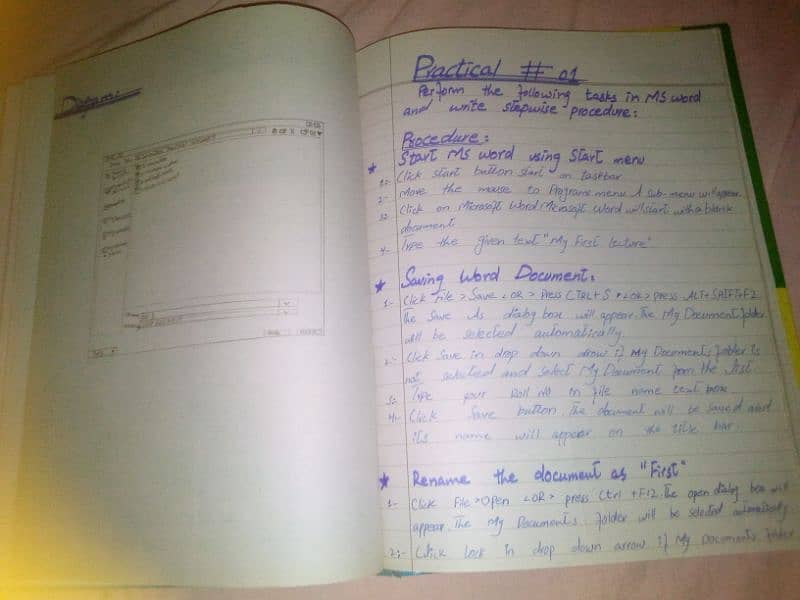 Diagram:
Practical # 01
Perform the following tasks in MS word
and write stepwise procedure:
Procedure:
Start MS word using Start menu
1:- Click start button start on taskbar
2:- Move the mouse to Programs menu A sub-menu will appear.
3:- Click on Microsoft Word Microsoft Word will start with a blank
document
4:- Type the given text "My First lecture"
Saving Word Document:
1:- Click File > Save <OR> Press CTRL+S <OR> press ALT+SHIFT+F2
The Save As dialog box will appear. The My Document folder
will be selected automatically.
2:- Click Save in drop down arrow if My Documents folder is
not selected and select My Document from the list.
3:- Type your Roll No in file name text box
4:- Click Save button. The document will be saved and
its name will appear on the title bar.
Rename the document as "First"
1:- Click File > Open <OR> press Ctrl + F12. The open dialog box will
appear. The My Documents folder will be selected automatically.
2:- Click look in drop down arrow if My Documents folder